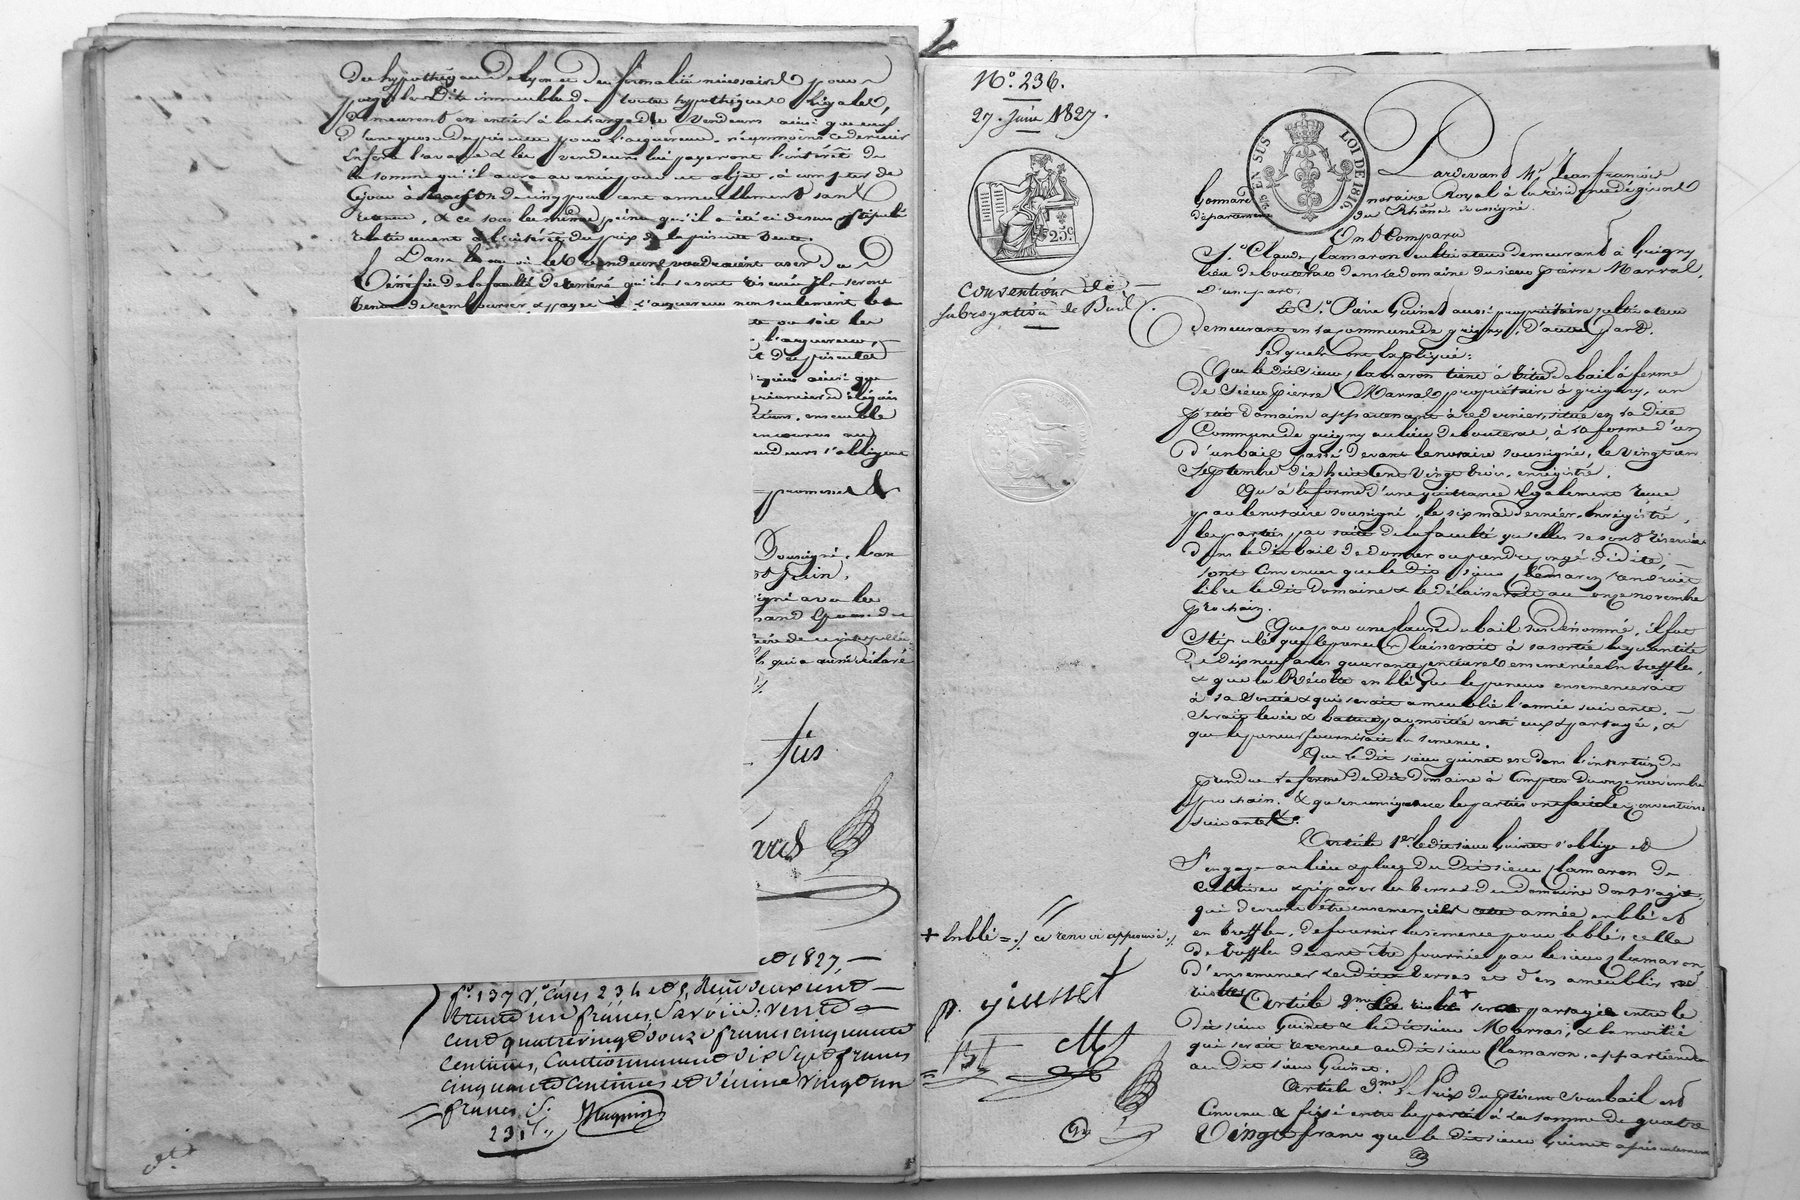 des hypothèques de Lyon et des formalités nécessaires pour
purger les dits immeubles de toute hypothèques légales,
demeurent en entier à la charge des vendeurs ainsi que ceux
néanmoins ce dernier
en fera l'avance & les vendeurs lui payeront l'intérêt de
la somme qu'il aura avancé pour cet objet, à compter de
ce jour à raison de cinq pour cent annuellement sans
retenue, & ce sous les même peine qu'il a été ci dessus stipulé
relativement à l'intérêt du prix de la présente vente.
Dans le cas où les vendeurs voudraient user du
Bénéfice de la faculté de réméré qu'ils se sont réservée ils seront
tenus de rembourser & payer à l'acquéreur non seulement les
ou soit les
l'acquéreur,
des présentes
ainsi que
ensemble
s'obligent
promesses &
soussigné, l'an
Juin,
signé avec les
qui a aussi déclaré
et 1827,
f° 137 v° cases 234 et 5, Reçu deux cent
trente un francs, Savoir: vente
cent quatre vingt douze francs cinquante
centimes, Cautionnement dix sept francs
cinquante centimes et Dixième vingt un
francs
231
N° 236.
27 Juin 1827.
25 EN SUS
LOI DE 1816.
25 c
Conventions de
subrogation de Bail
Pardevant Me Jean françois
Gomard notaire Royal à la résidence de givors
département du Rhône soussigné
Ont Comparu
Sr Claude Clamaron cultivateur demeurant à Grigny
lieu de bouteras dans le domaine du sieur pierre Marral,
d'une part,
& Sr Pierre Guinet aussi propriétaire cultivateur
demeurant en la commune de grigny, d'autre part.
Lesquels ont Expliqué:
Que le dit sieur Clamaron tient à titre de bail à ferme
de sieur pierre Marral propriétaire à grigny, un
petit domaine appartenant à ce dernier, situé en la dite
Commune de grigny au lieu de bouteras, à la forme d'un
d'un bail passé devant le notaire soussigné, le vingt un
Septembre dix huit cent vingt trois, enregistré.
Qu'à la forme d'une quittance également reçue
par le notaire soussigné, le six mai dernier, Enregistré,
les parties par suite de la faculté qu'elles se sont réservée
dans le dit bail de donner ou prendre congé
sont convenues que le dit sieur Clamaron rendroit
libre le dit domaine & le délaisserait au onze novembre
prochain.
Que par une clause du bail sus dénommé, il fut
stipulé que le preneur laisserait à sa sortie la quantité
de dix neuf ares quarante centiares ensemencée en treffles,
& que la Récolte en blé que le preneur ensemencerait
à sa sortie & qui serait ameublie l'année suivante,
serait levée & battue par moitié entr'eux & partagée, &
que le preneur fournirait la semence.
Que le dit sieur guinet est dans l'intention de
prendre la ferme du dit domaine à compter du onze novembre
prochain. & qu'en conséquence les parties ont fait les conventions
suivantes.
Article 1er le dit sieur Guinet s'oblige et
s'engage au lieu & place du dit sieur Clamaron de
cultiver & préparer les terres du domaine dont s'agit,
qui devront être ensemencées cette année en blé et
en treffles, de fournir la semence pour le blé, celle
de treffles devant être fournie par le sieur Clamaron
d'ensemencer les dites terres et d'en ameublir
récoltes
Article 2me La récolte + sera partagée entre le
dit sieur Guinet & le dit sieur Marral, & la moitié
qui serait revenue au dit sieur Clamaron, appartiendra
au dit sieur Guinet.
Article 3me Le Prix du présent sous bail est
Convenu & fixé entre les parties à la somme de quatre
Vingt francs que le dit sieur Guinet
+ En blé =/ ce renvoi approuvé /
p. guinet